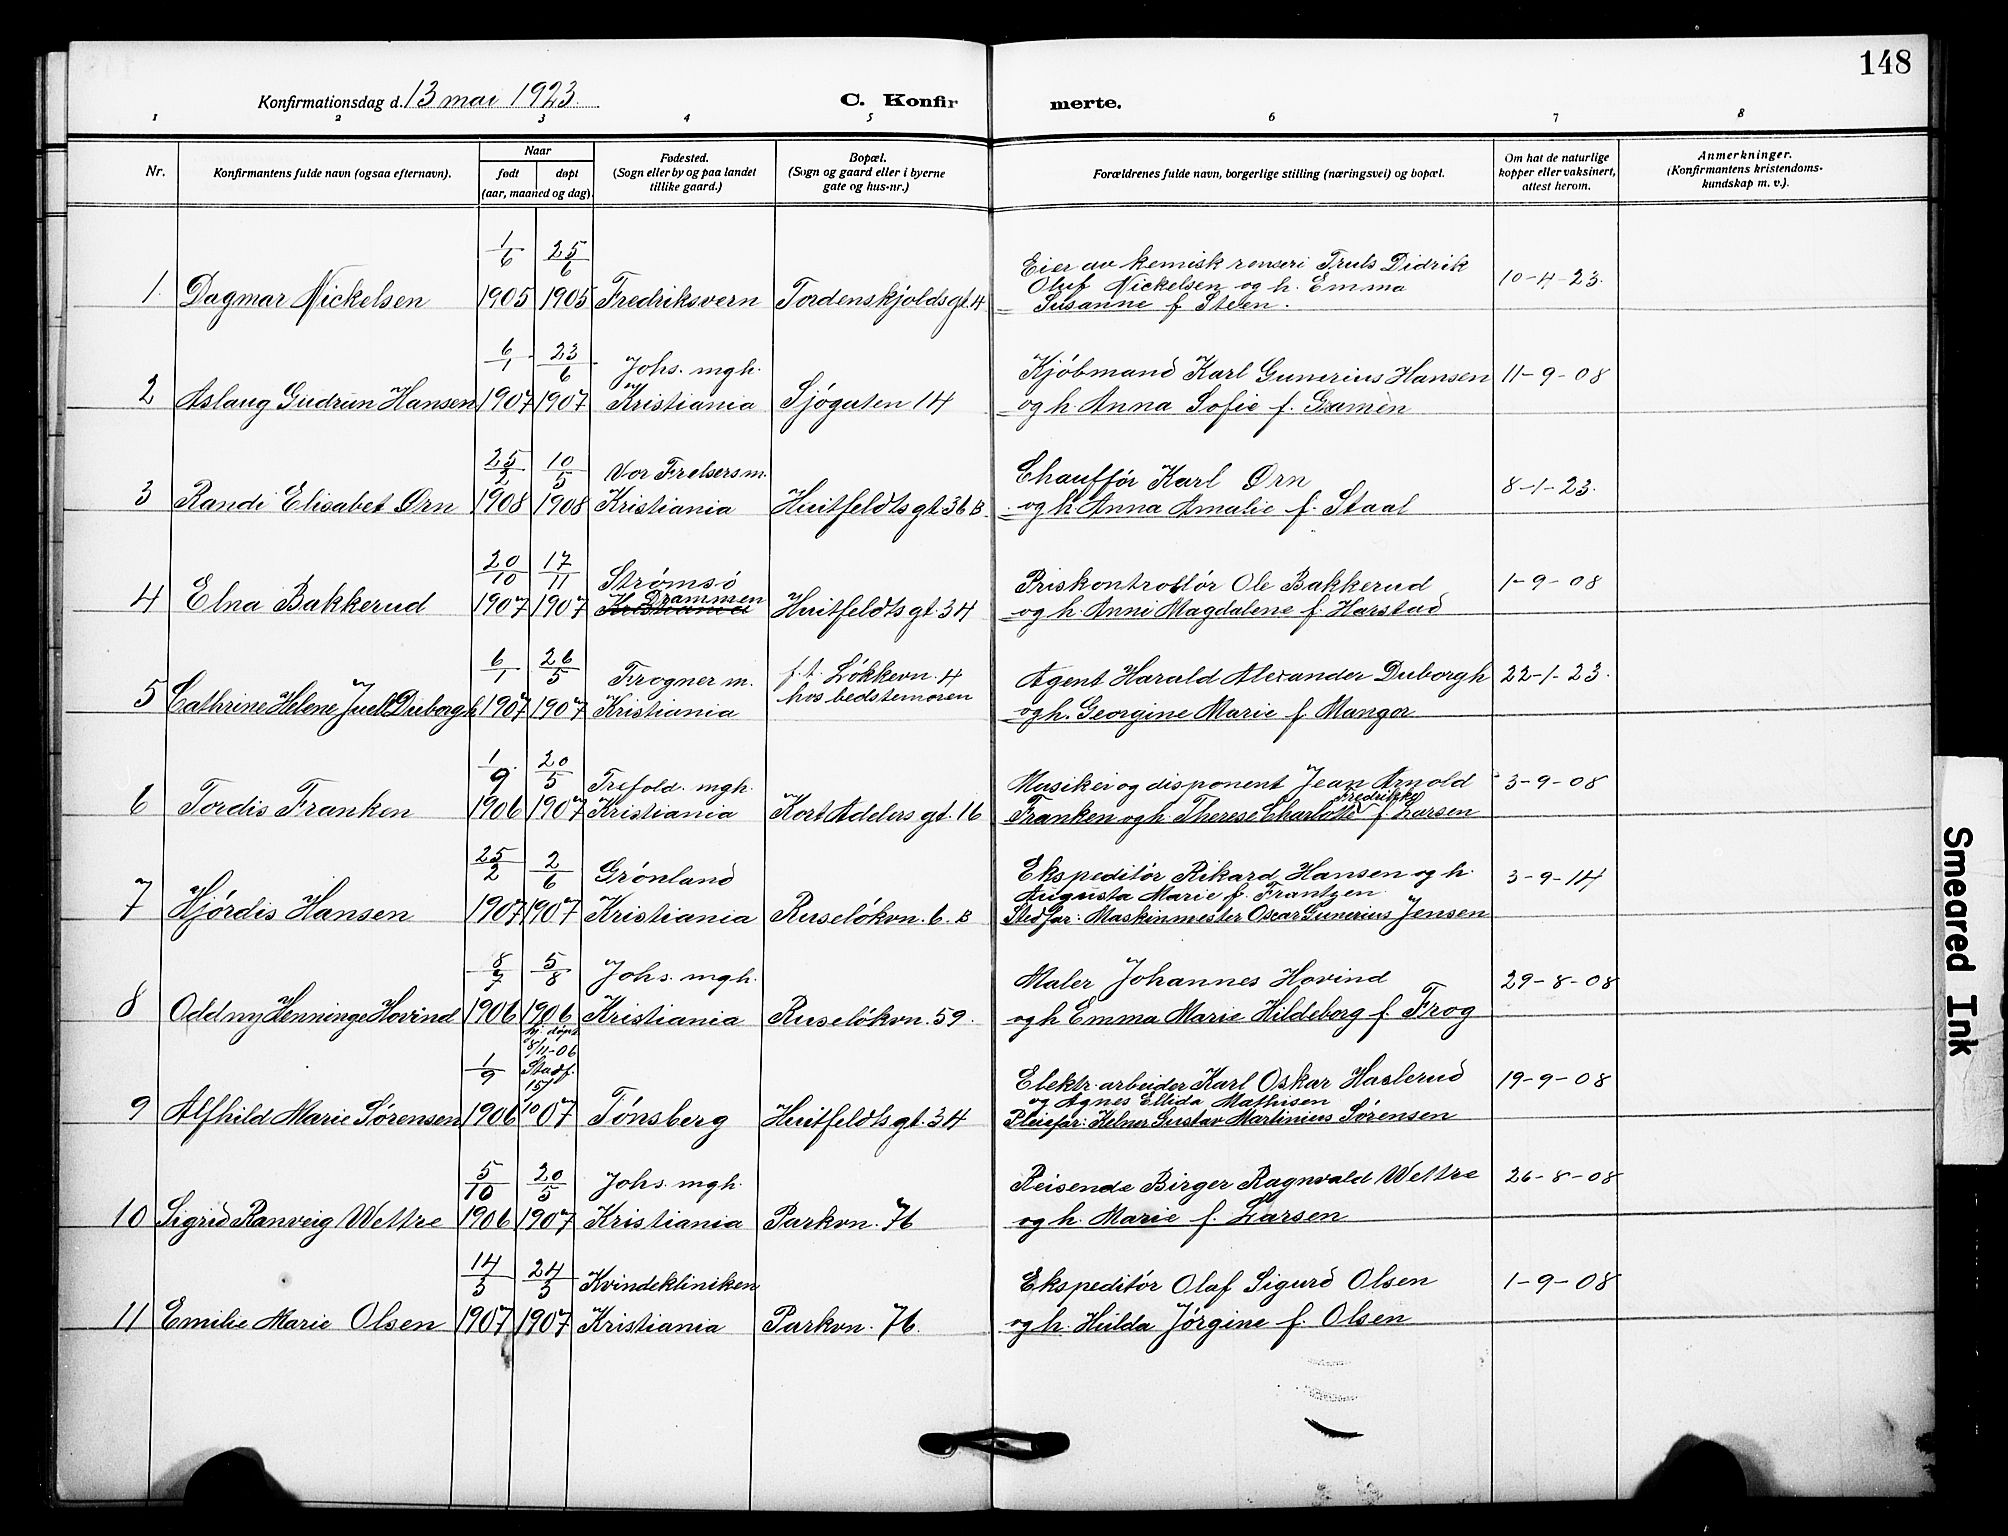 148
Konfirmationsdag d. 13 mai 1923.
C. Konfir merte.
1 2 3 4 5 6 7 8
Nr.
Konfirmantens fulde navn (ogsaa efternavn).
Naar
født døpt
(aar, maaned og dag).
Fødested.
(Sogn eller by og paa landet
tillike gaard.)
Bopæl.
(Sogn og gaard eller i byerne
gate og hus-nr.)
Forældrenes fulde navn, borgerlige stilling (næringsvei) og bopæl.
Om hat de naturlige
kopper eller vaksinert,
attest herom.
Anmerkninger.
(Konfirmantens kristendoms-
kundskap m. v.).
1/6 25/6 Eier av kemisk renseri Truls Didrik
1. Dagmar Nickelsen 1905 1905 Fredriksvern Tordenskjoldsgt. 4 Oluf Nickelsen og h. Emma 10-4-23.
Susanne f. Steen.
6/1 23/6 Johs. mgh. Kjöbmand Karl Gunerius Hansen 11-9-08
2 Aslaug Gudrun Hansen 1907 1907 Kristiania Sjögaten 14 og h. Anna Sofie f. Gramèn
25/2 10/5 Vor Frelsers m. Chaufför Karl Ørn 8-1-23.
3 Randi Elisabet Ørn 1908 1908 Kristiania Huitfeldtsgt. 36 B. og h. Anna Amalie f. Staal
20/10 17/11 Strømsö Priskontrollör Ole Bakkerud 1-9-08
4 Elna Bakkerud 1907 1907 Drammen Kristiania Huitfeldtsgt. 34 og h. Anne Magdalene f. Harstad
6/1 26/5 Frogner m. f.t. Lökkevn. 4 Agent Harald Alexander Duborgh 22-1-23.
5 Cathrine Helene Juell Duborgh 1907 1907 Kristiania hos bedstemoren og h. Georgine Marie f. Mangor
1/9 20/5 Trefold. mgh. Musiker og disponent Jean Arnold 3-9-08
6 Tordis Franken 1906 1907 Kristiania Kort Adelers gt. 16 Franken og h. Therese Charlotte Fredrikke f. Larsen
25/2 2/6 Grönland Ekspeditör Rikard Hansen og h. 3-9-14
Augusta Marie f. Frantzen
7 Hjördis Hansen 1907 1907 Kristiania Ruselökvn. 6. B Stedfar: Maskinmester Oscar Gunerius Jensen
8/7 5/8 Johs. mgh. Maler Johannes Hovind 29-8-08
8 Oddny Henninge Hovind 1906 1906 Kristiania Ruselökvn. 59. og h Emma Marie Hildeborg f. Frog
hj. döpt
8/11-06
1/9 Stadf. Elektr. arbeider Karl Oskar Haslerud 19-9-08
15/ og Agnes Ellida Mathisen
9 Alfhild Marie Sörensen 1906 10 07 Tönsberg Huitfeldtsgt. 34 Pleiefar: Kelner Gustav Martinius Sörensen
5/10 20/5 Johs. mgh. Reisende Birger Ragnvald Wettre 26-8-08
10 Sigrid Ranveig Wettre 1906 1907 Kristiania Parkvn. 76 og h. Marie f. Larsen
14/3 24/3 Kvindekliniken Ekspeditör Olaf Sigurd Olsen 1-9-08
11 Emilie Marie Olsen 1907 1907 Kristiania Parkvn. 76. og h. Hulda Jörgine f. Olsen
Smeared Ink